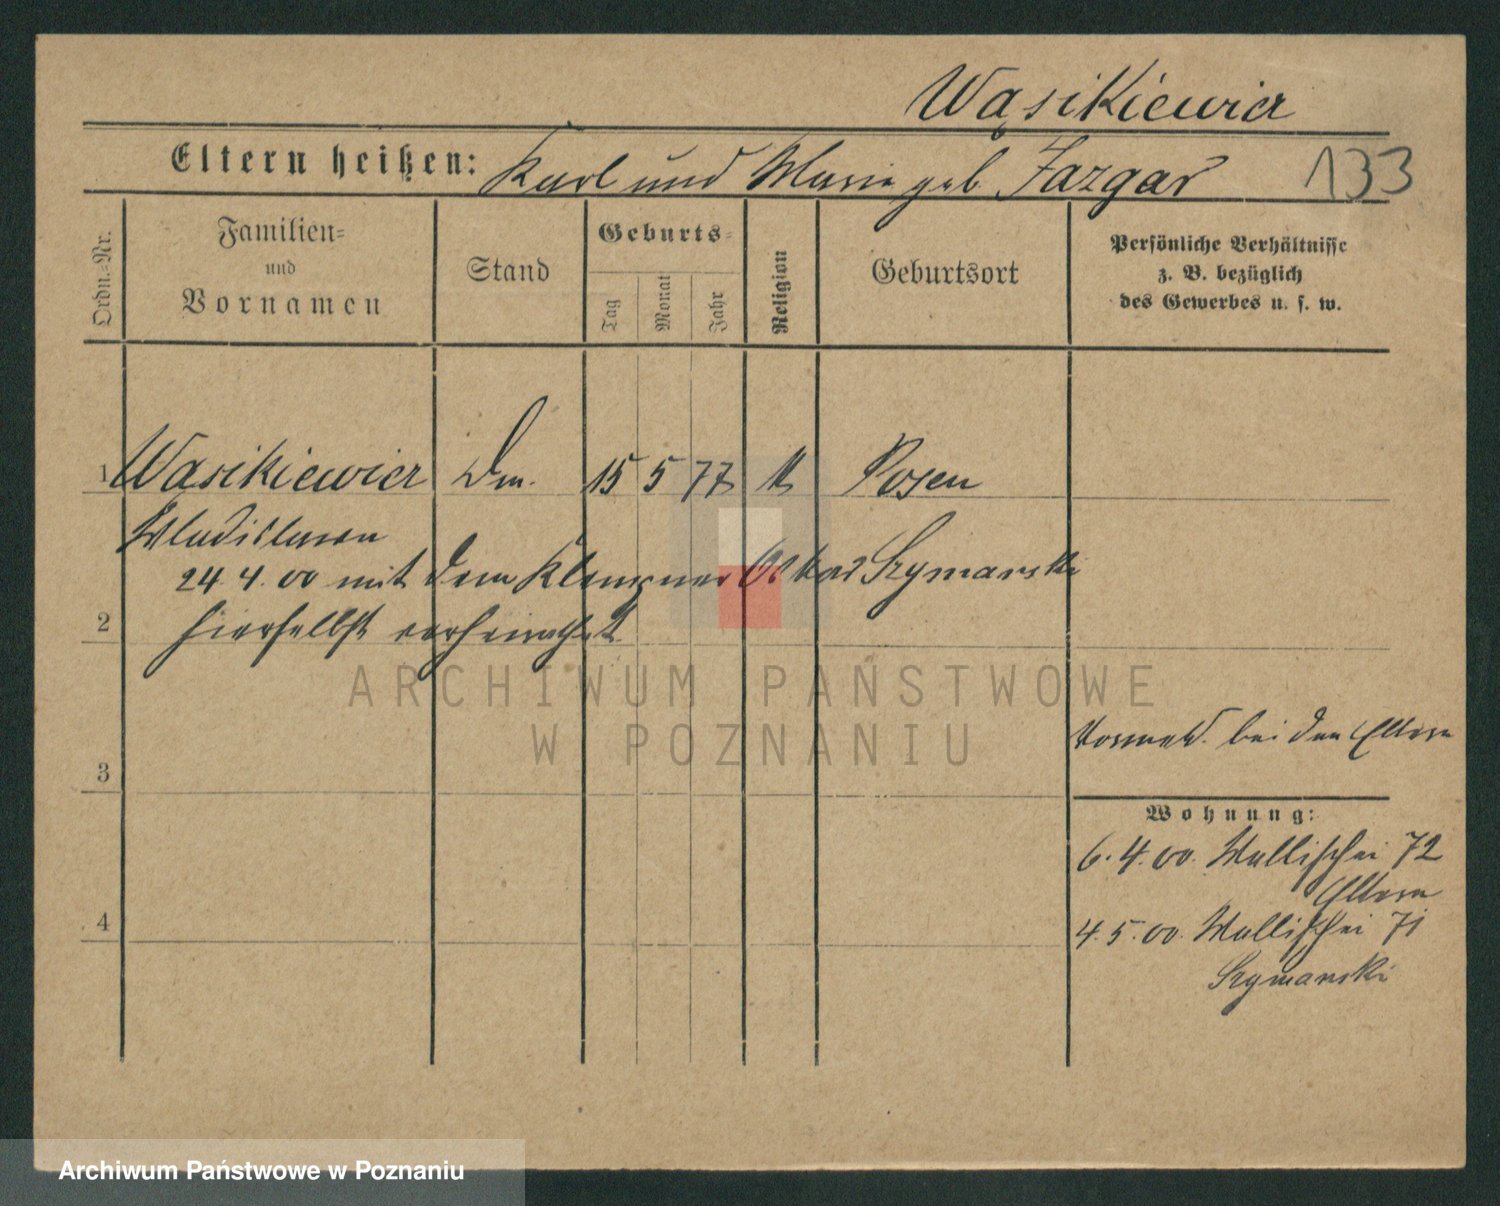 Wąsikiewicz
Eltern heißen: Karl und Marie geb. Jazgar
133
Ordn.-Nr.
Familien-
und
Vornamen
Stand
Geburts-
Tag
Monat
Jahr
Religion
Geburtsort
Persönliche Verhältnisse
z. B. bezüglich
des Gewerbes u. s. w.
1 Wąsikiewicz 15 5 77 k Posen
Wladislawa
24.4.00 mit dem Klempner Oskar Szymanski
2 hierselbst verheirathet
ARCHIWUM PAŃSTWOWE
W POZNANIU
bei den Eltern
3
Wohnung:
6.4.00. Wallischei 72
Eltern
4
4.5.00. Wallischei 71
Szymanski
Archiwum Państwowe w Poznaniu